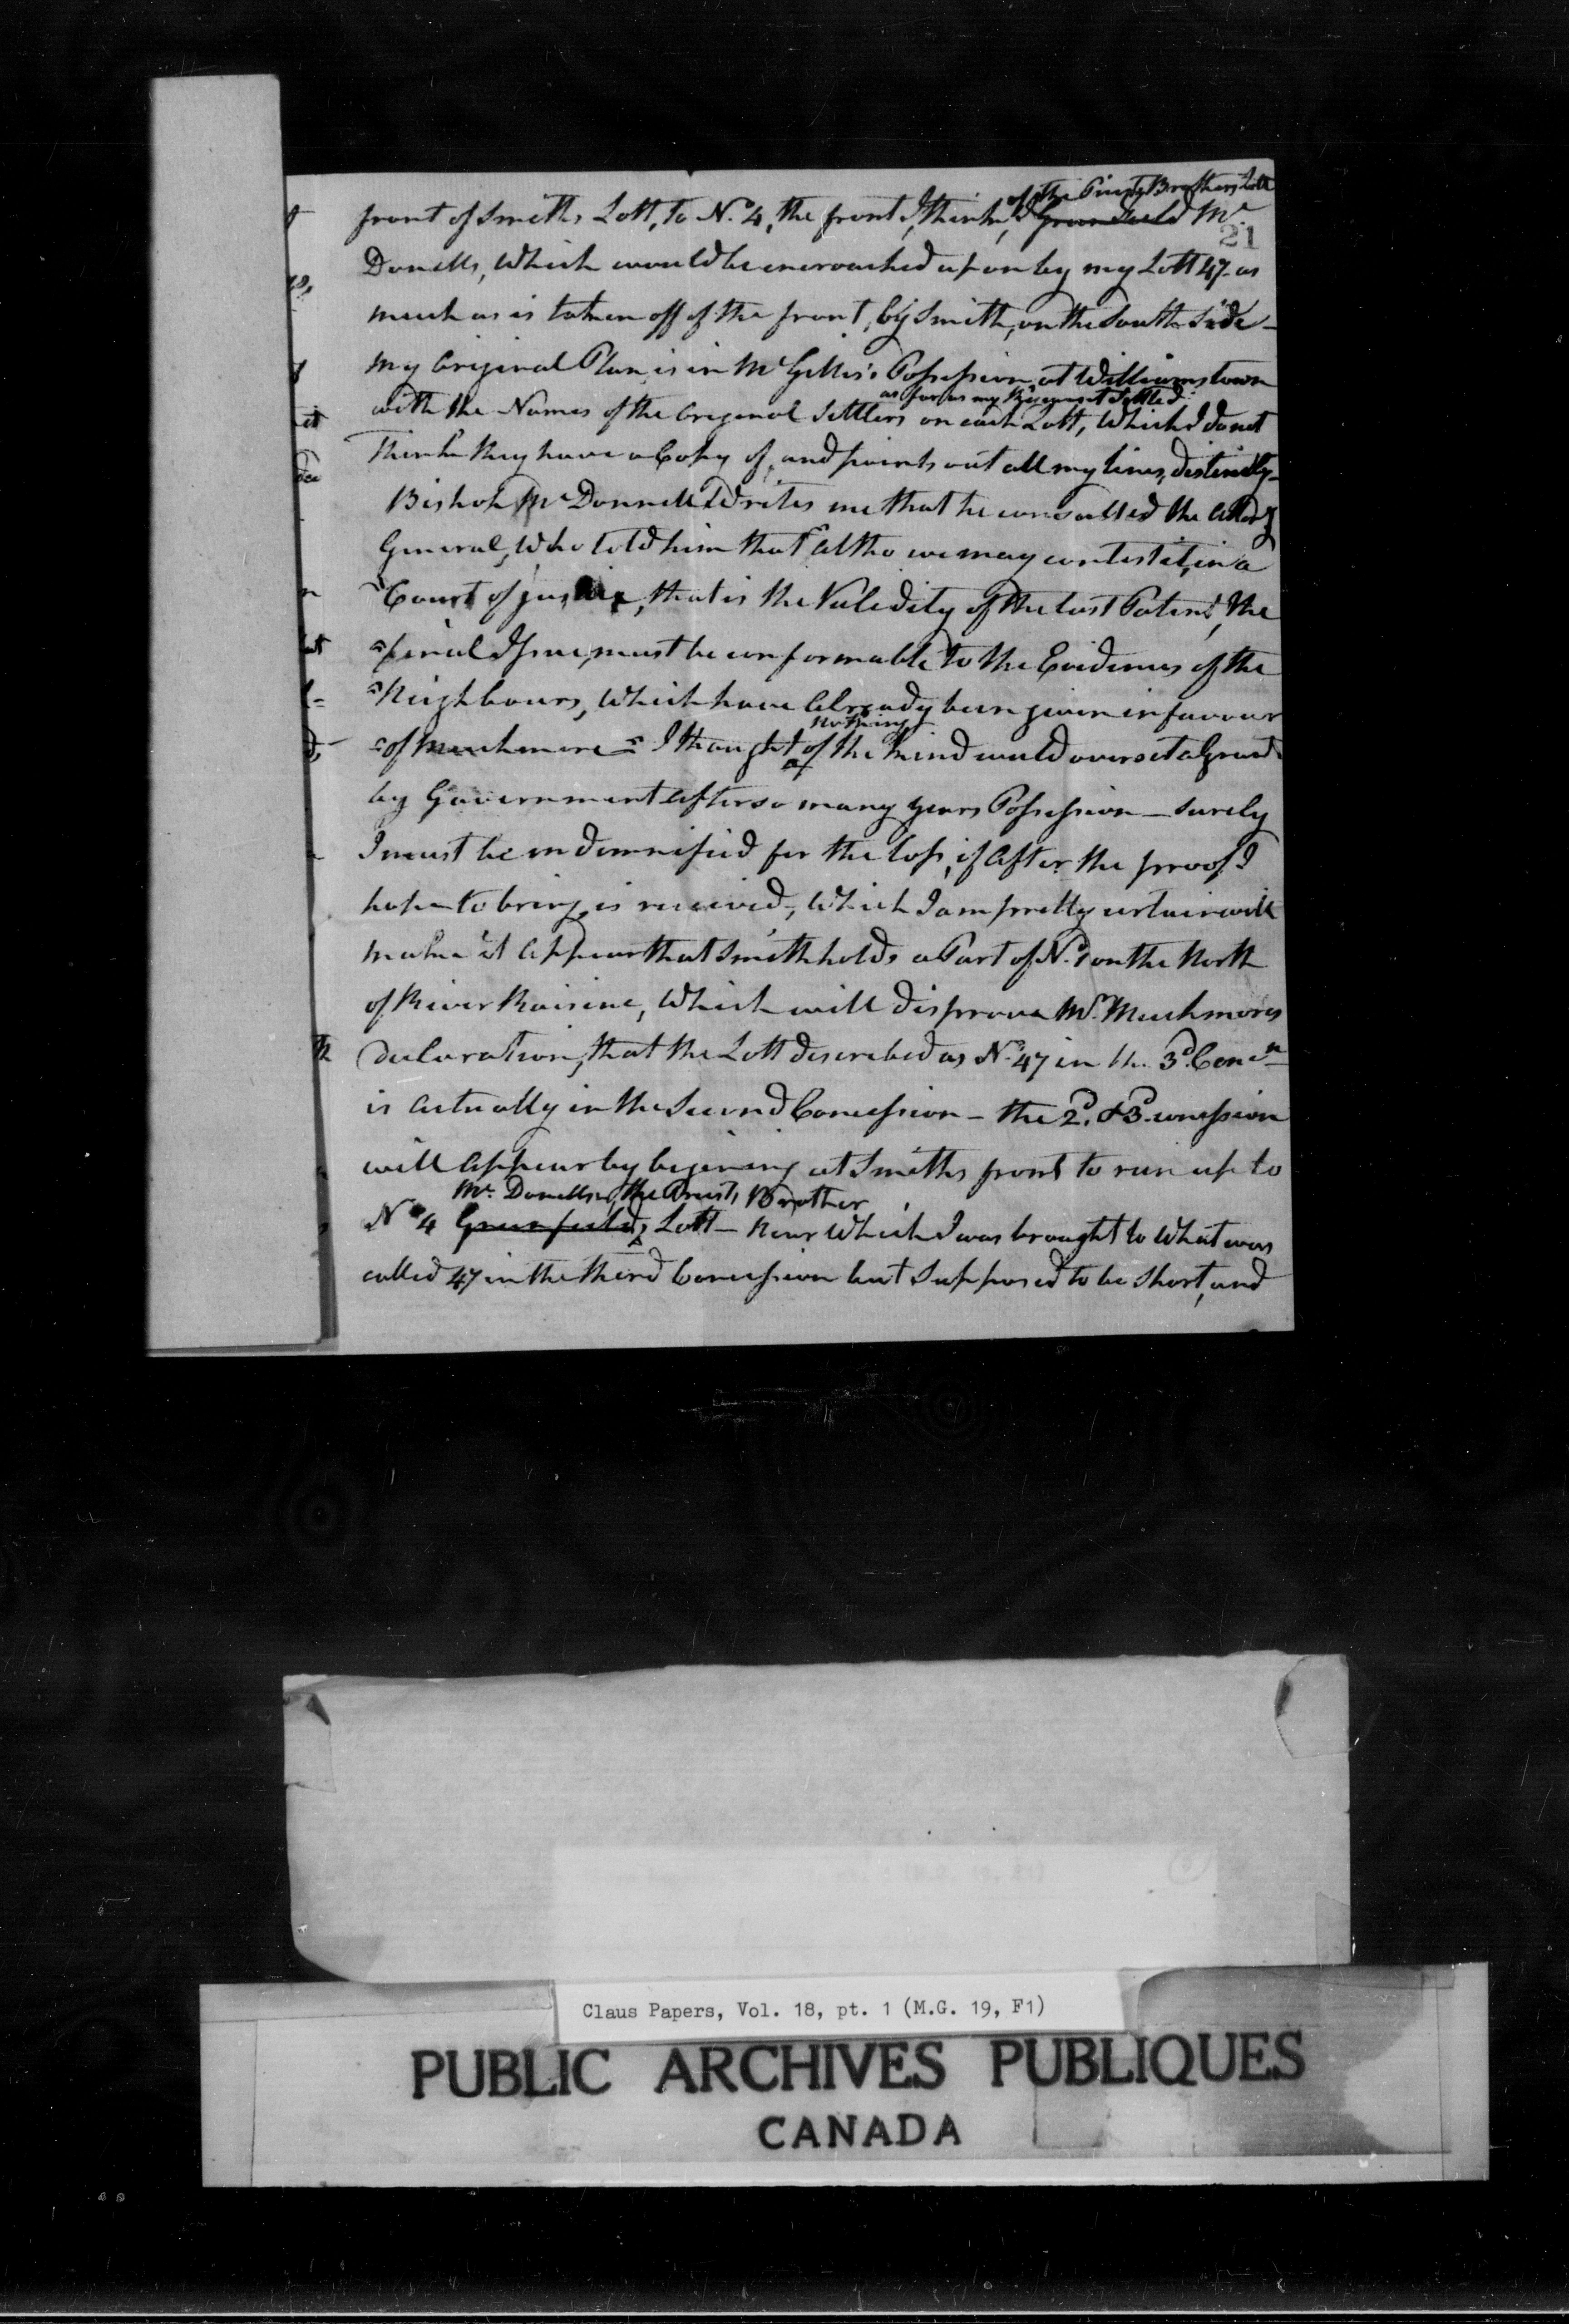 of the Priests Brothers Lott
front of Smiths Lott, to N.o 4, the front I think, of Greenfield Mc
21
Donells, which would be encroached upon by my Lott 47 as
much as is taken off of the front, by Smith, on the South Side -
my Original Plan is in McGillis's Possession at Williamstown
as far as my Regiment Settled
with the Names of the Original Settlers on each Lott, which I do not
Think they have a Copy of, and points out all my lines, distinctly -
Bishop McDonnell Writes me that he consulted the Attory
General, Who told him that "Altho we may contest it, in a
"Court of justice, that is the Validity of the last Patent, the
"final Issue, must be conformable to the Evidences of the
"Neighbours, which have Already been given in favour
nothing
"of Muchmore" I thought of the kind could overset a Grant
by Government after so many years Possession - surely
I must be indemnified for the loss, if After the proof I
hope to bring, is received, Which I am pretty certain will
make it Appear that Smith holds a Part of N.o 1 on the North
of River Raisine, Which will disprove Mr. Muchmores
Declaration, that the Lott described as N.o 47 in the 3d. Concn
is Actually in the Second Concession - the 2d. & 3d. concession
will Appear by begining at Smiths front to run up to
Mc Donells, the Priests Brother
No 4 Greenfields Lott - near Which I was brought to What was
called 47 in the third Concession but Supposed to be Short, and
Claus Papers, Vol. 18, pt. 1 (M.G. 19, F1)
PUBLIC ARCHIVES PUBLIQUES
CANADA